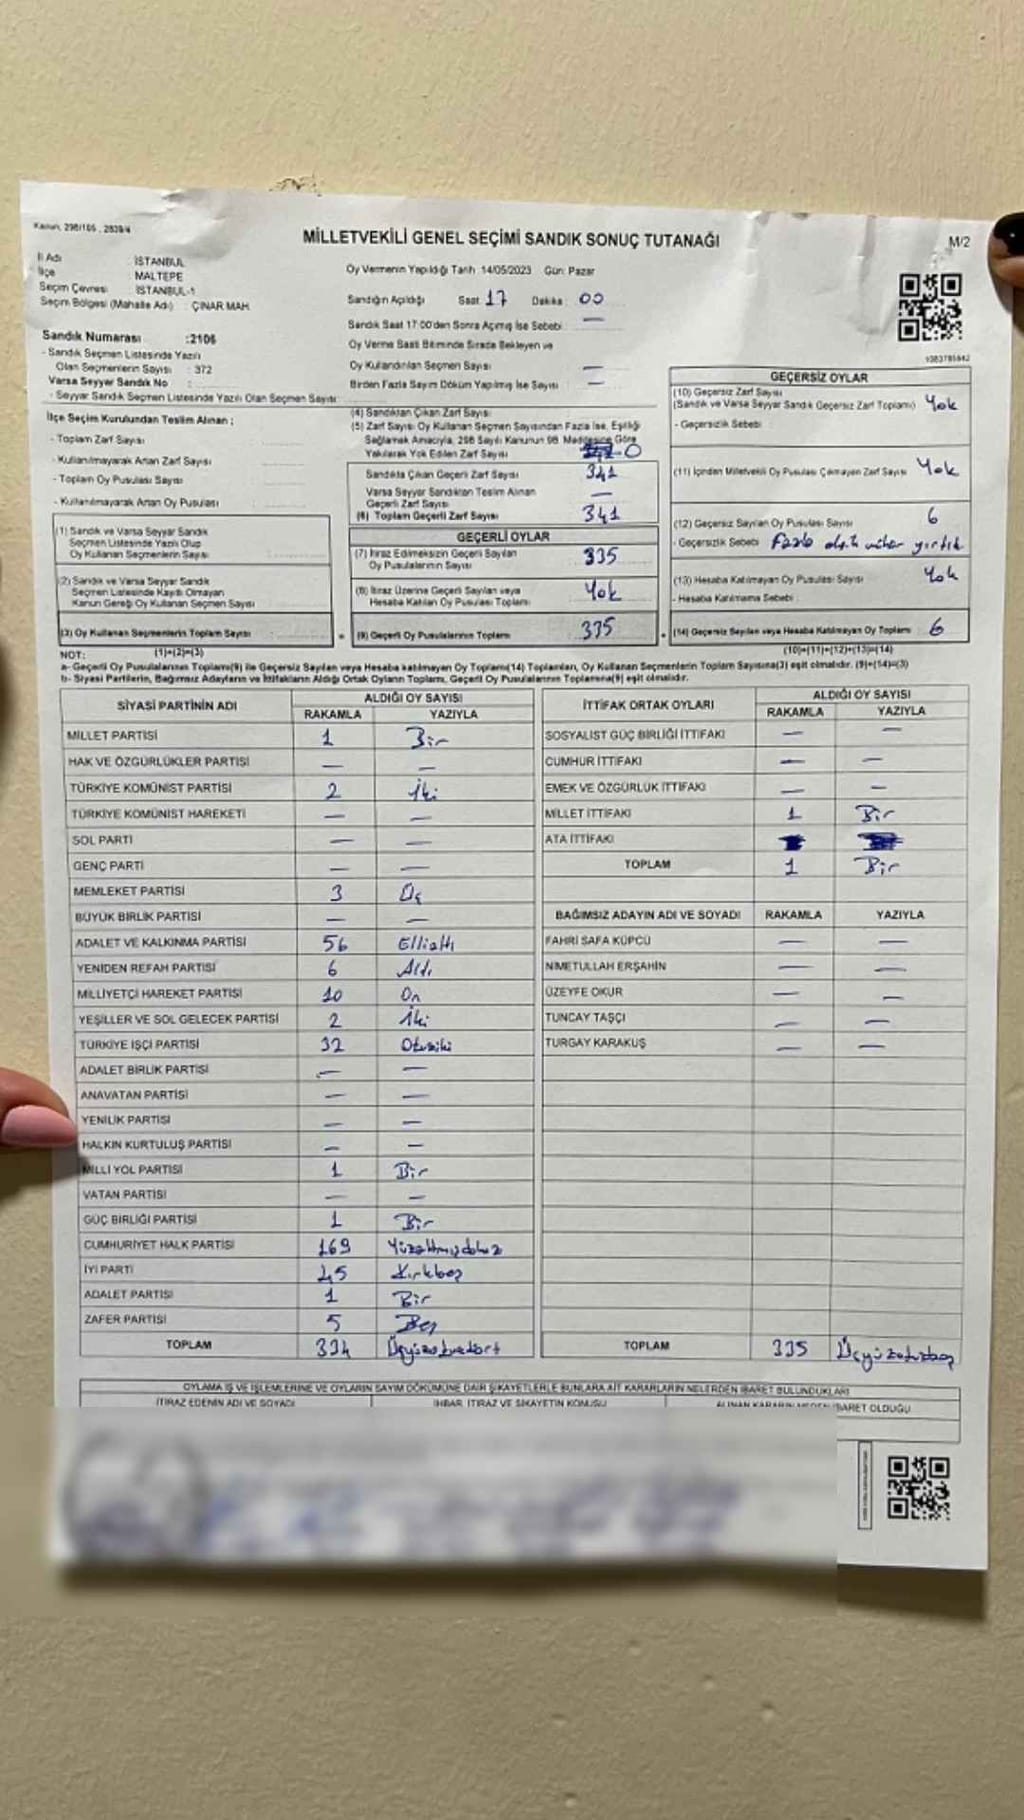 Kanun, 298/105 , 2839/4
MİLLETVEKİLİ GENEL SEÇİMİ SANDIK SONUÇ TUTANAĞI
M/2
İl Adı : İSTANBUL
İlçe : MALTEPE
Seçim Çevresi : İSTANBUL-1
Seçim Bölgesi (Mahalle Adı) : ÇINAR MAH.
Oy Vermenin Yapıldığı Tarih 14/05/2023 Gün: Pazar
Sandığın Açıldığı Saat 17 Dakika : 00
Sandık Saat 17:00'den Sonra Açılmış İse Sebebi : —
Oy Verme Saati Bitiminde Sırada Bekleyen ve
Oy Kullandırılan Seçmen Sayısı : —
Birden Fazla Sayım Döküm Yapılmış İse Sayısı : —
1083785842
Sandık Numarası :2106
- Sandık Seçmen Listesinde Yazılı
Olan Seçmenlerin Sayısı : 372
Varsa Seyyar Sandık No :
- Seyyar Sandık Seçmen Listesinde Yazılı Olan Seçmen Sayısı :
İlçe Seçim Kurulundan Teslim Alınan ;
- Toplam Zarf Sayısı :
- Kullanılmayarak Artan Zarf Sayısı :
- Toplam Oy Pusulası Sayısı :
- Kullanılmayarak Artan Oy Pusulası :
(1) Sandık ve Varsa Seyyar Sandık
Seçmen Listesinde Yazılı Olup
Oy Kullanan Seçmenlerin Sayısı :
(2) Sandık ve Varsa Seyyar Sandık
Seçmen Listesinde Kayıtlı Olmayan
Kanun Gereği Oy Kullanan Seçmen Sayısı :
(3) Oy Kullanan Seçmenlerin Toplam Sayısı :
(1)+(2)=(3)
(4) Sandıktan Çıkan Zarf Sayısı :
(5) Zarf Sayısı Oy Kullanan Seçmen Sayısından Fazla İse, Eşitliği
Sağlamak Amacıyla, 298 Sayılı Kanunun 98. Maddesine Göre
Yakılarak Yok Edilen Zarf Sayısı : 0
Sandıkta Çıkan Geçerli Zarf Sayısı : 341
Varsa Seyyar Sandıktan Teslim Alınan
Geçerli Zarf Sayısı : —
(6) Toplam Geçerli Zarf Sayısı : 341
GEÇERLİ OYLAR
(7) İtiraz Edilmeksizin Geçerli Sayılan
Oy Pusulalarının Sayısı : 335
(8) İtiraz Üzerine Geçerli Sayılan veya
Hesaba Katılan Oy Pusulası Toplamı : Yok
(9) Geçerli Oy Pusulalarının Toplamı : 335
GEÇERSİZ OYLAR
(10) Geçersiz Zarf Sayısı
(Sandık ve Varsa Seyyar Sandık Geçersiz Zarf Toplamı) : Yok
- Geçersizlik Sebebi :
(11) İçinden Milletvekili Oy Pusulası Çıkmayan Zarf Sayısı : Yok
(12) Geçersiz Sayılan Oy Pusulası Sayısı : 6
- Geçersizlik Sebebi : Fazla yırtık
(13) Hesaba Katılmayan Oy Pusulası Sayısı : Yok
- Hesaba Katılmama Sebebi :
(14) Geçersiz Sayılan veya Hesaba Katılmayan Oy Toplamı : 6
(10)+(11)+(12)+(13)=(14)
NOT:
a- Geçerli Oy Pusulalarının Toplamı(9) ile Geçersiz Sayılan veya Hesaba katılmayan Oy Toplamı(14) Toplamları, Oy Kullanan Seçmenlerin Toplam Sayısına(3) eşit olmalıdır. (9)+(14)=(3)
b- Siyasi Partilerin, Bağımsız Adayların ve İttifakların Aldığı Ortak Oyların Toplamı, Geçerli Oy Pusulalarının Toplamına(9) eşit olmalıdır.
SİYASİ PARTİNİN ADI ALDIĞI OY SAYISI
RAKAMLA YAZIYLA
MİLLET PARTİSİ 1 Bir
HAK VE ÖZGÜRLÜKLER PARTİSİ — —
TÜRKİYE KOMÜNİST PARTİSİ 2 İki
TÜRKİYE KOMÜNİST HAREKETİ — —
SOL PARTİ — —
GENÇ PARTİ — —
MEMLEKET PARTİSİ 3 Üç
BÜYÜK BİRLİK PARTİSİ — —
ADALET VE KALKINMA PARTİSİ 56 Ellialtı
YENİDEN REFAH PARTİSİ 6 Altı
MİLLİYETÇİ HAREKET PARTİSİ 10 On
YEŞİLLER VE SOL GELECEK PARTİSİ 2 İki
TÜRKİYE İŞÇİ PARTİSİ 32 Otuziki
ADALET BİRLİK PARTİSİ — —
ANAVATAN PARTİSİ — —
YENİLİK PARTİSİ — —
HALKIN KURTULUŞ PARTİSİ — —
MİLLİ YOL PARTİSİ 1 Bir
VATAN PARTİSİ — —
GÜÇ BİRLİĞİ PARTİSİ 1 Bir
CUMHURİYET HALK PARTİSİ 169 Yüzaltmışdokuz
İYİ PARTİ 45 Kırkbeş
ADALET PARTİSİ 1 Bir
ZAFER PARTİSİ 5 Beş
TOPLAM 334 Üçyüzotuzdört
İTTİFAK ORTAK OYLARI ALDIĞI OY SAYISI
RAKAMLA YAZIYLA
SOSYALİST GÜÇ BİRLİĞİ İTTİFAKI — —
CUMHUR İTTİFAKI — —
EMEK VE ÖZGÜRLÜK İTTİFAKI — —
MİLLET İTTİFAKI 1 Bir
ATA İTTİFAKI
TOPLAM 1 Bir
BAĞIMSIZ ADAYIN ADI VE SOYADI RAKAMLA YAZIYLA
FAHRİ SAFA KÜPCÜ — —
NİMETULLAH ERŞAHİN — —
ÜZEYFE OKUR — —
TUNCAY TAŞÇI — —
TURGAY KARAKUŞ — —
TOPLAM 335 Üçyüzotuzbeş
OYLAMA İŞ VE İŞLEMLERİNE VE OYLARIN SAYIM DÖKÜMÜNE DAİR ŞİKAYETLERLE BUNLARA AİT KARARLARIN NELERDEN İBARET BULUNDUKLARI
İTİRAZ EDENİN ADI VE SOYADI İHBAR, İTİRAZ VE ŞİKAYETİN KONUSU ALINAN KARARIN NEDEN İBARET OLDUĞU